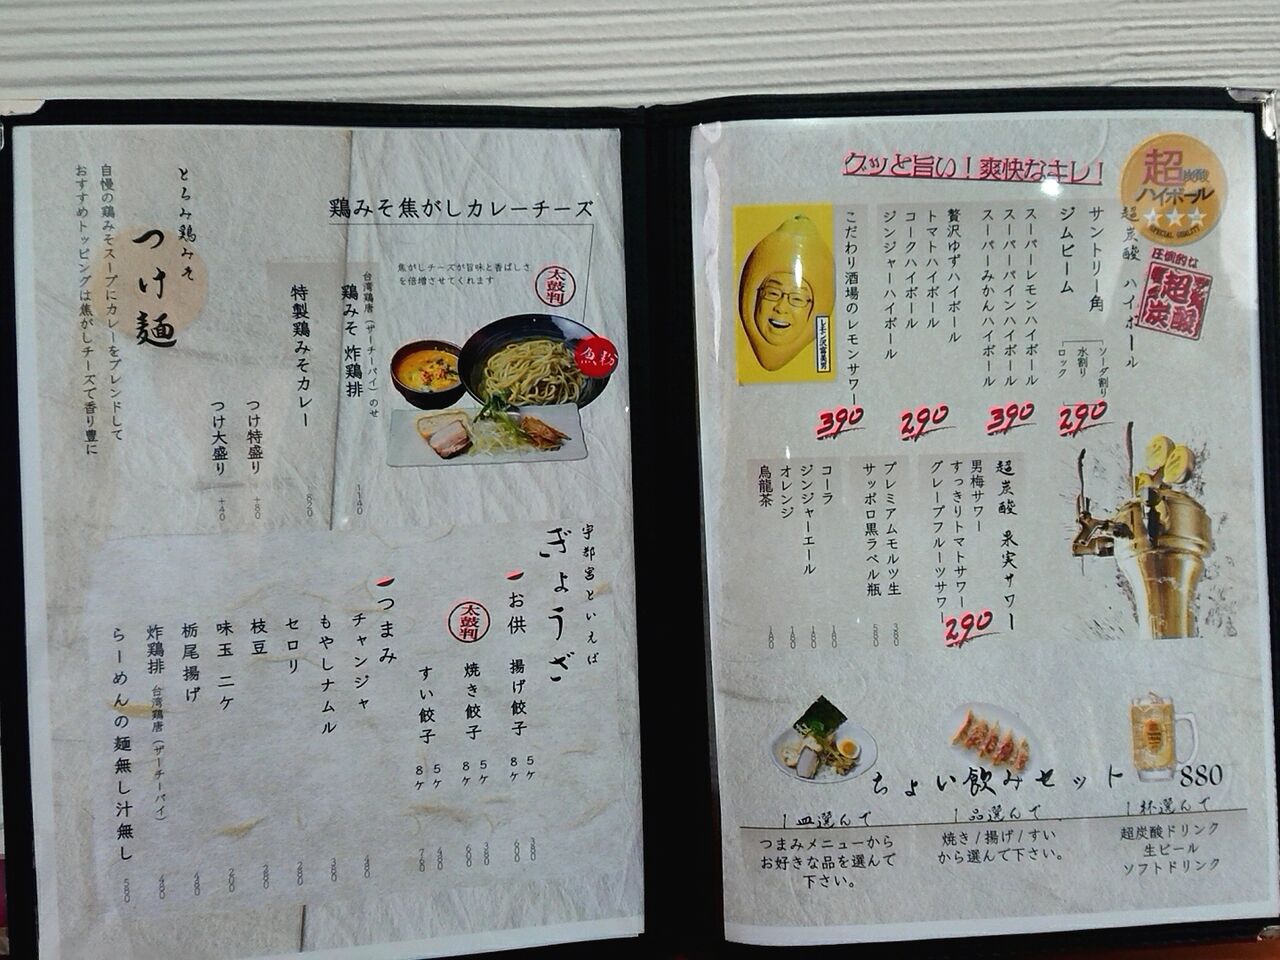 鶏みそ焦がしカレーチーズ
焦がしチーズが旨味と香ばしさ
を倍増させてくれます
太鼓判
魚粉
とろみ鶏みそ
つけ麺
自慢の鶏みそスープにカレーをブレンドして
おすすめトッピングは焦がしチーズで香り豊に
台湾鶏唐(ザーチーパイ)のせ
鶏みそ 炸鶏排 1140
特製鶏みそカレー 820
つけ特盛り +80
つけ大盛り +40
宇都宮といえば
ぎょうざ
お供 揚げ餃子 5ケ 380
8ケ 600
太鼓判
焼き餃子 5ケ 380
8ケ 600
すい餃子 5ケ 480
8ケ 760
つまみ
チャンジャ 480
もやしナムル 380
セロリ 280
枝豆 280
味玉 二ケ 200
栃尾揚げ 480
炸鶏排 台湾鶏唐(ザーチーパイ) 480
らーめんの麺無し汁無し 580
グッと旨い!爽快なキレ!
超炭酸
ハイボール
SPECIAL QUALITY
圧倒的な
超炭酸
超炭酸 ハイボール
サントリー角
ジムビーム
ソーダ割り
水割り
ロック
290
スーパーレモンハイボール
スーパーパインハイボール
スーパーみかんハイボール
390
贅沢ゆずハイボール
トマトハイボール
コークハイボール
ジンジャーハイボール
290
こだわり酒場のレモンサワー
390
レモン沢富美男
超炭酸 果実サワー
男梅サワー
すっきりトマトサワー
グレープフルーツサワー
290
プレミアムモルツ生 380
サッポロ黒ラベル瓶 580
コーラ 180
ジンジャーエール 180
オレンジ 180
烏龍茶 180
ちょい飲みセット 880
1皿選んで
つまみメニューから
お好きな品を選んで
下さい。
1品選んで
焼き/揚げ/すい
から選んで下さい。
1杯選んで
超炭酸ドリンク
生ビール
ソフトドリンク